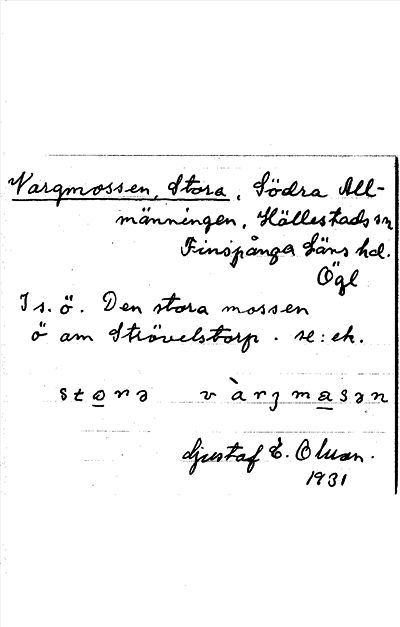 Vargmossen, Stora, Södra All-
männingen, Hällestads sn
Finspånga Läns hd.
Ögl
I s. ö. Den stora mossen
ö am Strövelstorp. se: ek.
stora vàrgmasan
Gustaf E. Olson.
1931